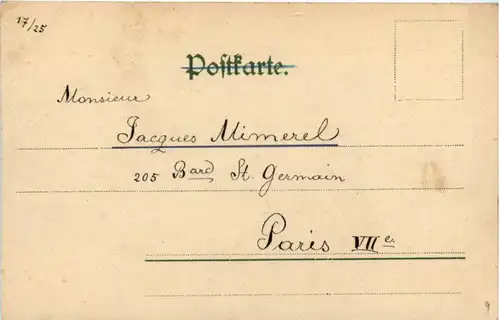 17/25
Postkarte.
Monsieur
Jacques Mimerel
205 Bard St. Germain
Paris VII e.
9